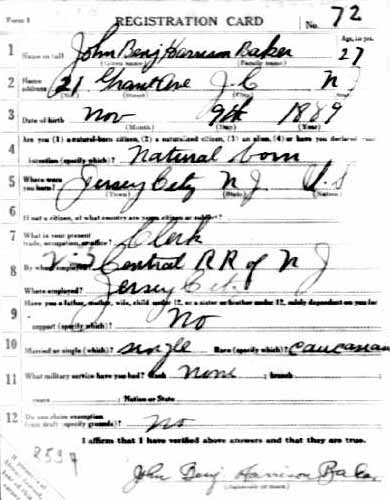 Form 1 REGISTRATION CARD No. 72
1 Name in full John Benj Harrison Baker 27
(Given name) (Family name) Age, in yrs.
2 Home address 21 Grant Ave J.C N J
(No.) (Street) (City) (State)
3 Date of birth Nov 9th 1889
(Month) (Day) (Year)
Are you (1) a natural-born citizen, (2) a naturalized citizen, (3) an alien, (4) or have you declared your
4 intention (specify which)? Natural born
5 Where were you born? Jersey City N J U S
(Town) (State) (Nation)
6 If not a citizen, of what country are you a citizen or subject?
7 What is your present trade, occupation, or office? Clerk
8 By whom employed? Central RR of N J
Where employed? Jersey City
9 Have you a father, mother, wife, child under 12, or a sister or brother under 12, solely dependent on you for
support (specify which)? No
10 Married or single (which)? single Race (specify which)? Caucasian
11 What military service have you had? Rank none ; branch
years ; Nation or State
12 Do you claim exemption from draft (specify grounds)? No
I affirm that I have verified above answers and that they are true.
John Benj Harrison Baker
(Signature or mark)